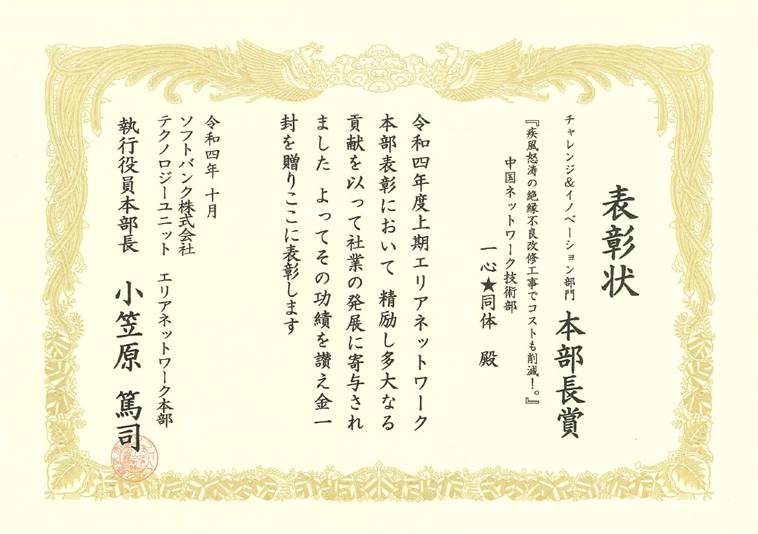 表彰状
チャレンジ&イノベーション部門 本部長賞
『疾風怒涛の絶縁不良改修工事でコストも削減!。』
中国ネットワーク技術部
一心★同体 殿
令和四年度上期エリアネットワーク
本部表彰において 精励し多大なる
貢献を以って社業の発展に寄与され
ました よってその功績を讃え金一
封を贈りここに表彰します
令和四年 十月
ソフトバンク株式会社
テクノロジーユニット エリアネットワーク本部
執行役員本部長 小笠原 篤司